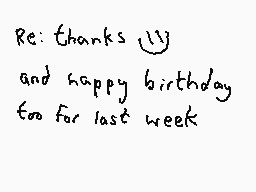 Re: thanks
and happy birthday
too for last week